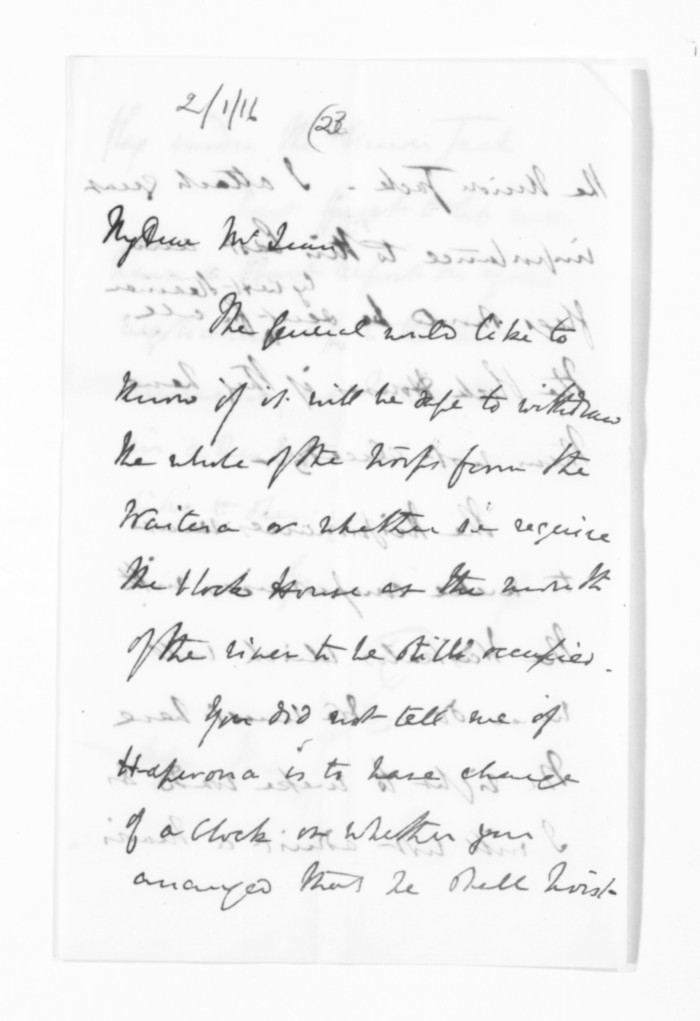 2/1/16
(23
My Dear Mr
The General would like to
know if it will be safe to withdraw
the whole of the troops from the
Waitera or whether we require
the block House at the mouth
of the river to be still occupied.
You did not tell me if
Hapurona is to have charge
of a Clock or whether you
arranged that he shall hoist